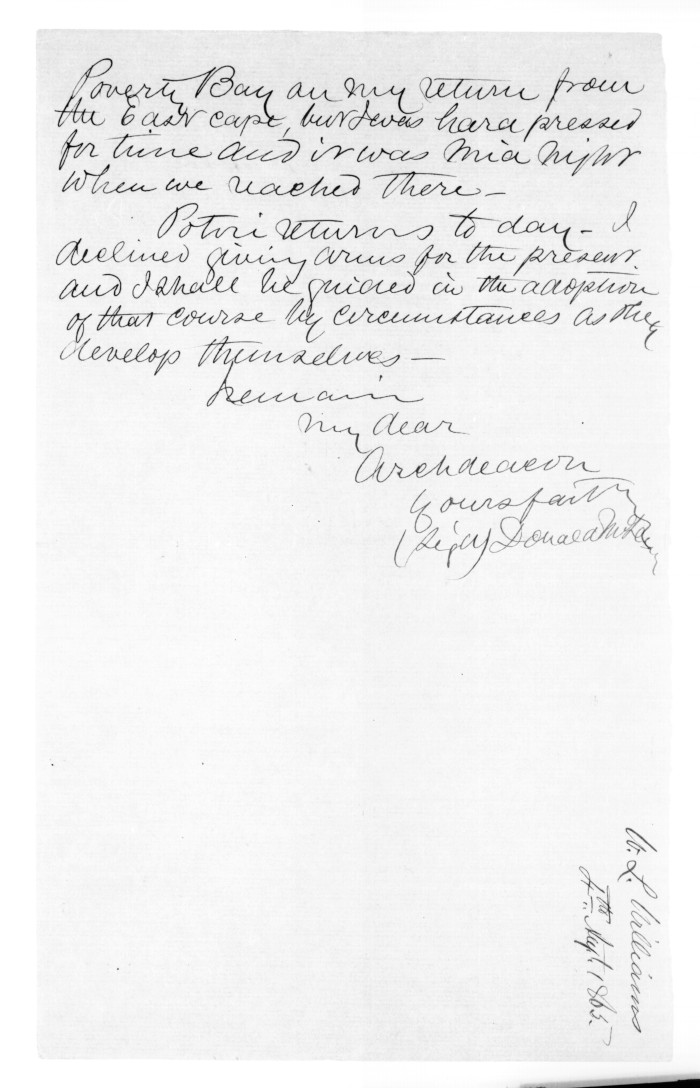 Poverty Bay on my return from
the East cape, but I was hard pressed
for time and it was mid night
when we reached there -
Potiri returns to day - I
declined giving arms for the present
and I shall be guided in the adoption
of that course by circumstances as they
develop themselves -
I remain
my dear
Archdeacon
yours faithy
(Sigd) Donald McLean
W. L. Williams
4th Sept. 1865.